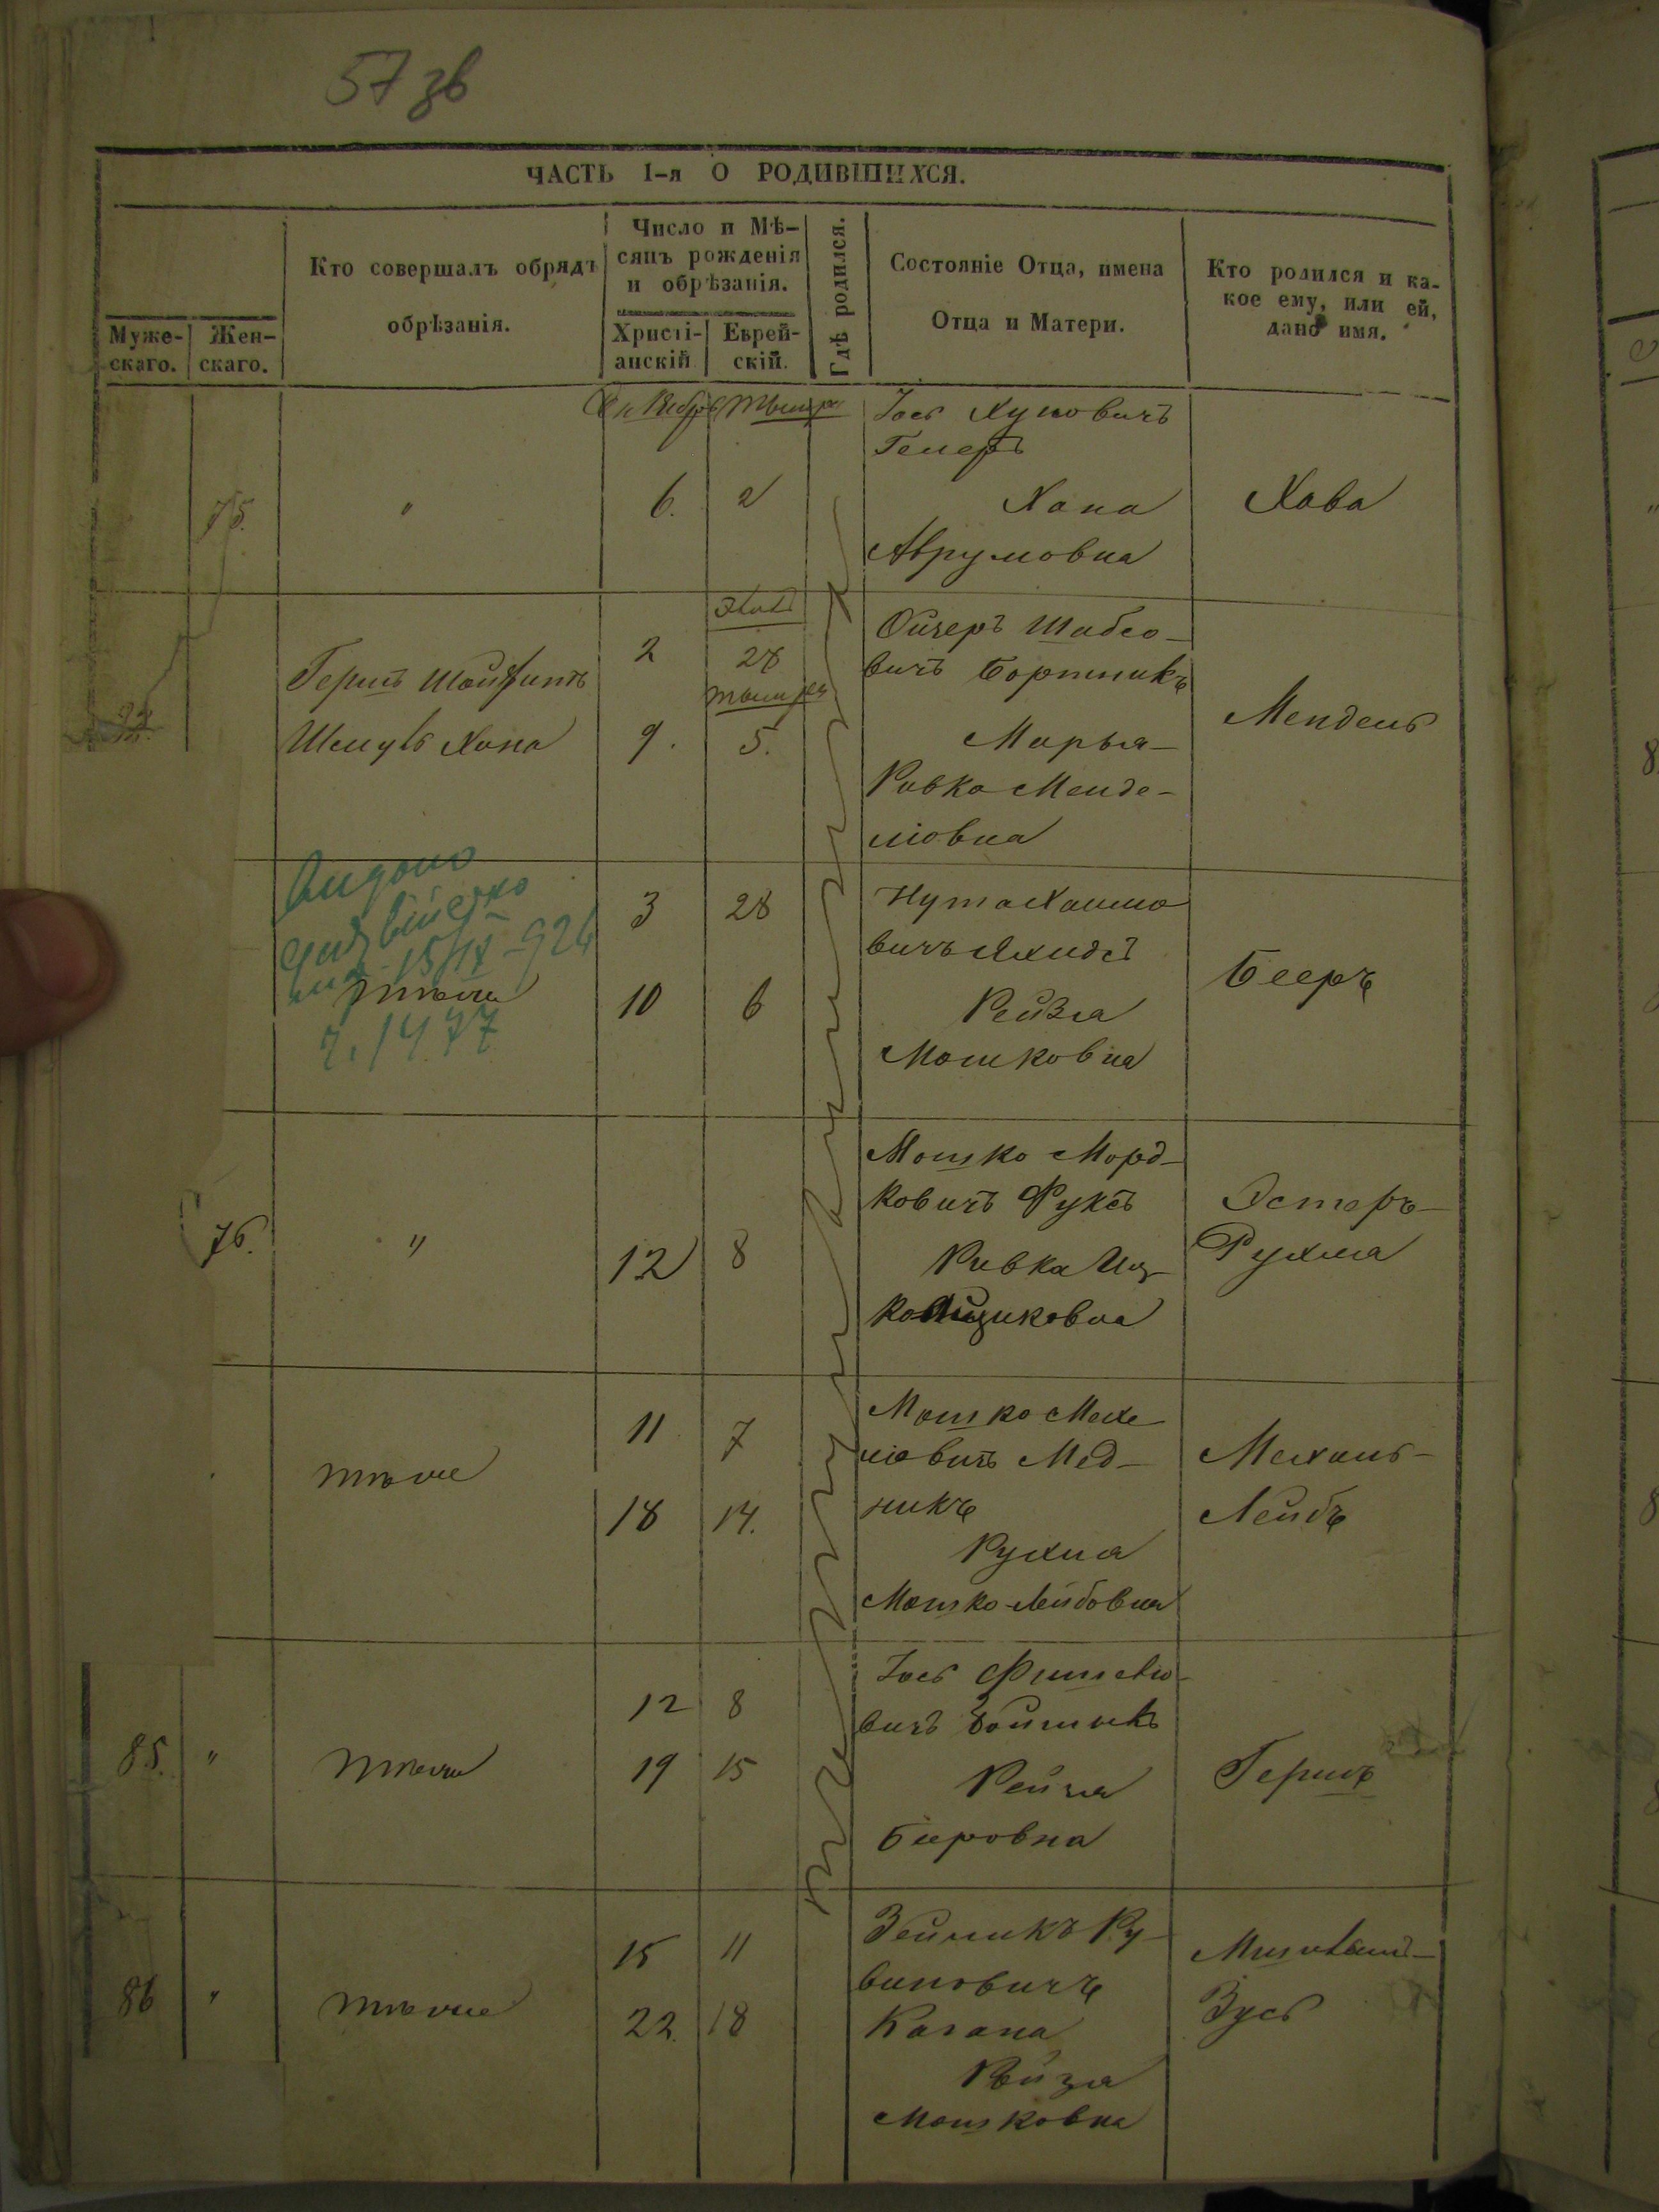 57 зв
ЧАСТЬ I-я О РОДИВШИХСЯ.
Муже-
скаго.
Жен-
скаго.
Кто совершалъ обрядъ
обрѣзанія.
Число и Мѣ-
сяцъ рожденія
и обрѣзанія.
Христі-
анскій
Еврей-
скій.
Гдѣ родился.
Состояніе Отца, имена
Отца и Матери.
Кто родился и ка-
кое ему, или ей,
дано имя.
75.
"
6.
2
Іось
Хана
Аврумовна
Хава
Гершъ
Шмулъ Хана
2
9.
28
5.
Ойзеръ Шабсо-
вичъ Бортникъ
Марья-
Ривка Менде-
ліовна
Мендель
Видано
15/IX-926
ч. 1477
тѣже
3
10
28
6
Нута Хаимо
вичъ
Рейзя
Мошковна
Бееръ
76.
"
12
8
Мошко Морд-
ковичъ Фуксъ
Ривка
Эстеръ-
Рухля
тѣже
11
18
7
14.
Мошко Мехе
ліовичъ Мед-
никъ
Рухля
Мошко-Лейбовна
Мехель-
Лейбъ
85.
"
тѣже
12
19
8
15
Іось Фишелю-
вичъ
Рейзя
Беровна
Гершъ
86
"
тѣже
15
22.
11
18
Зейликъ Ру-
виновичъ
Кагана
Рейзя
Мошковна
Зусь